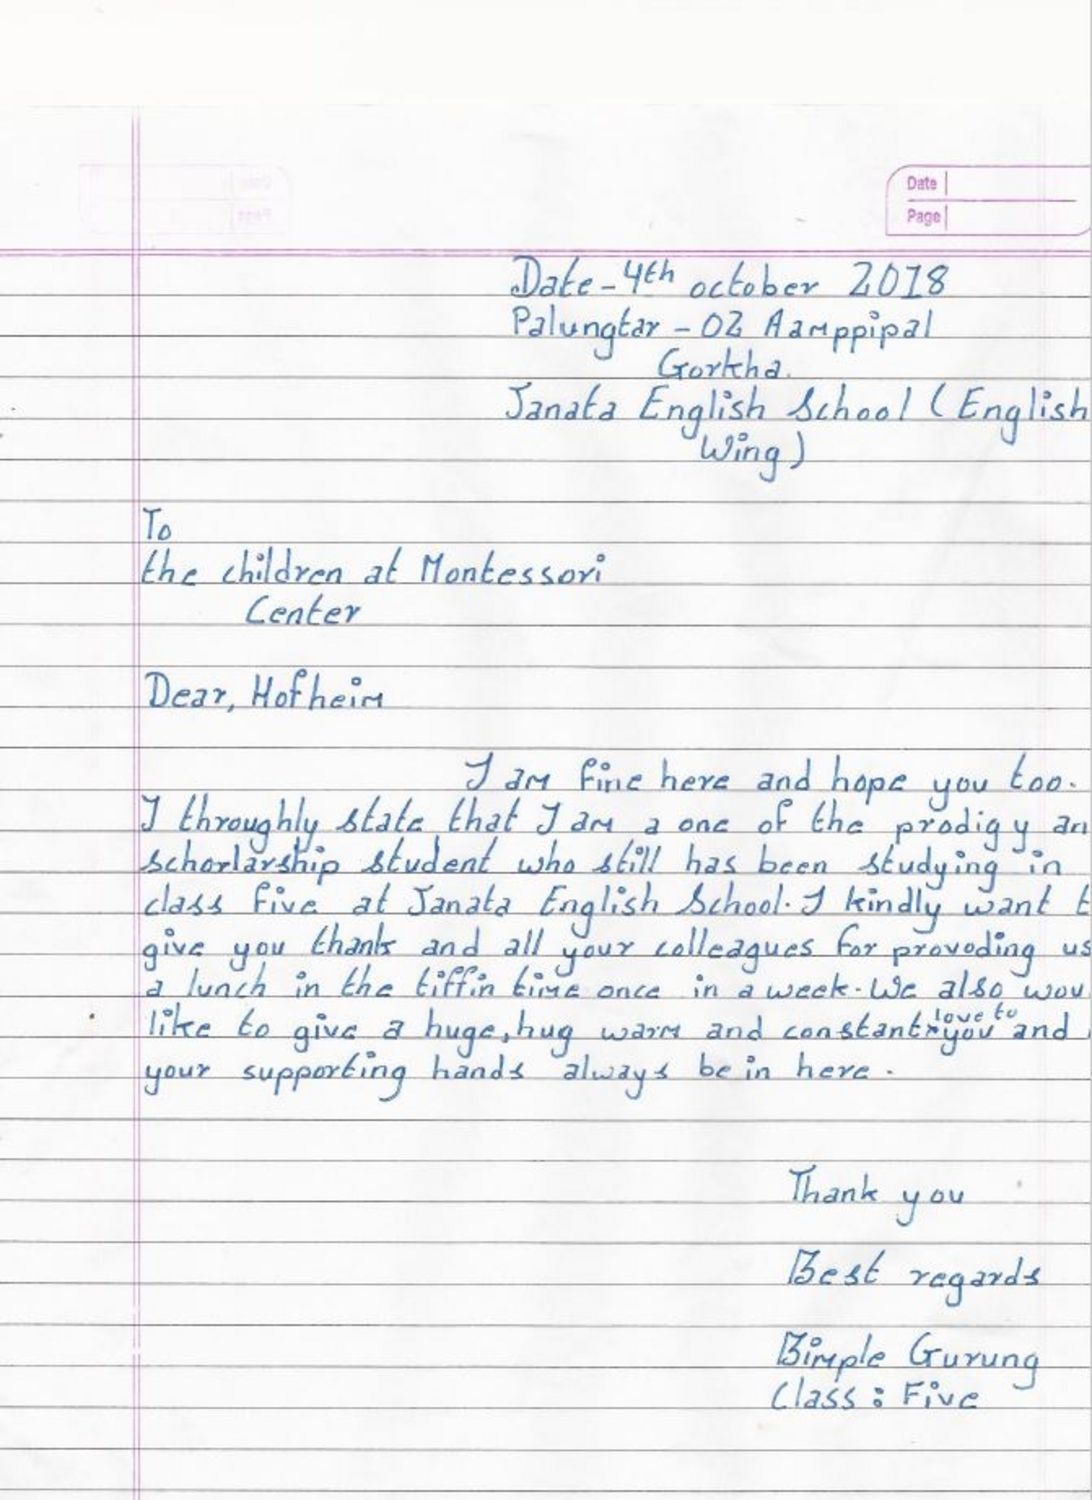 Date
Page
Date-4th october 2018
Palungtar - 02 Aamppipal
Gorkha.
Janata English School (English
Wing)
To
the children at Montessori
Center
Dear, Hofheim
I am fine here and hope you too.
I throughly state that I am a one of the prodigy an
schorlarship student who still has been studying in
class five at Janata English School. I kindly want t
give you thank and all your colleagues for provoding us
a lunch in the tiffin time once in a week. We also wou
like to give a huge, hug warm and constant love to you and
your supporting hands always be in here.
Thank you
Best regards
Bimple Gurung
Class : Five